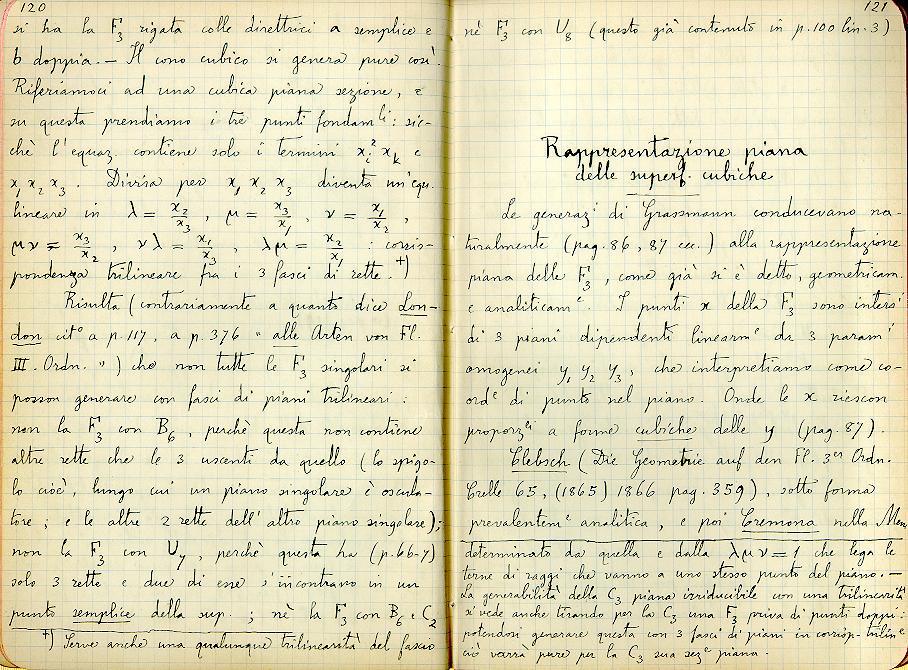 120
si ha la F₃ rigata colle direttrici a semplice e
b doppia. — Il cono cubico si genera pure così.
Riferiamoci ad una cubica piana sezione, e
su questa prendiamo i tre punti fondam^li: sic-
chè l'equaz. contiene solo i termini x_i² x_k e
x₁ x₂ x₃. Divisa per x₁ x₂ x₃ diventa un'equ.
lineare in λ = x₂/x₃, μ = x₃/x₁, ν = x₁/x₂,
μν = x₃/x₂, νλ = x₁/x₃, λμ = x₂/x₁ : corris-
pondenza trilineare fra i 3 fasci di rette. +)
Risulta (contrariamente a quanto dice Lon-
don cit° a p. 117, a p. 376 " alle Arten von Fl.
III. Ordn. ") che non tutte le F₃ singolari si
posson generare con fasci di piani trilineari:
non la F₃ con B₆, perchè questa non contiene
altre rette che le 3 uscenti da quello (lo spigo-
lo cioè, lungo cui un piano singolare è oscula-
tore; e le altre 2 rette dell'altro piano singolare);
non la F₃ con U₇, perchè questa ha (p. 66-7)
solo 3 rette e due di esse s'incontrano in un
punto semplice della sup.; nè la F₃ con B₆ e C₂
+) Serve anche una qualunque trilinearità del fascio
121
nè F₃ con U₈ (questo già contenuto in p. 100 lin. 3)
Rappresentazione piana
delle superf. cubiche
Le generaz^i di Grassmann conducevano na-
turalmente (pag. 86, 87 ecc.) alla rappresentazione
piana delle F₃, come già si è detto, geometricam.
e analiticam^e. I punti x della F₃ sono inters^i
di 3 piani dipendenti linearm^e da 3 param^i
omogenei y₁ y₂ y₃, che interpretiamo come co-
ord^e di punto nel piano. Onde le x riescon
proporz^li a forme cubiche delle y (pag. 87).
Clebsch (Die Geometrie auf den Fl. 3^er Ordn.
Crelle 65, (1865) 1866 pag. 359), sotto forma
prevalentem^e analitica, e poi Cremona nella Mem
determinato da quella e dalla λμν = 1 che lega le
terne di raggi che vanno a uno stesso punto del piano. —
La generabilità della C₃ piana irriducibile con una trilinearità
si vede anche tirando per la C₃ una F₃ priva di punti doppi:
potendosi generare questa con 3 fasci di piani in corrisp. trilin^e
ciò varrà pure per la C₃ sua sez^e piana.